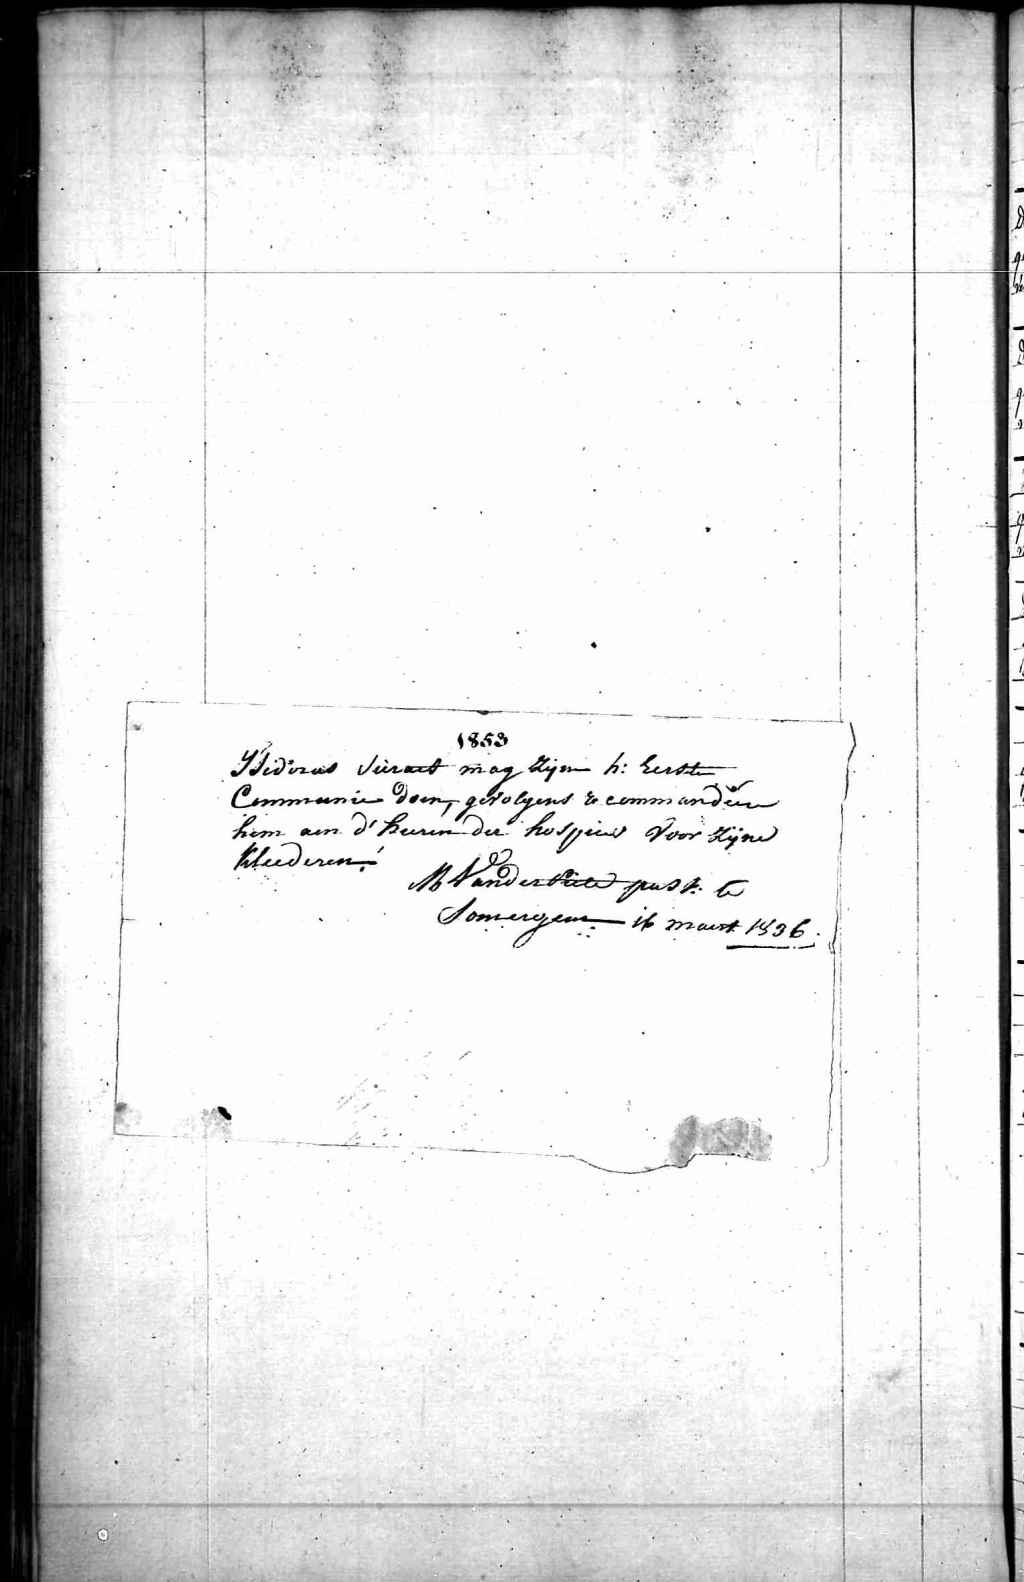 1853
Isidorus mag zijn h: Eerste
Communie doen, gevolgens recommandeer
hem aen d'heeren der hospices voor zijne
kleederen.
past: te
Somergem 16 maert 1836.